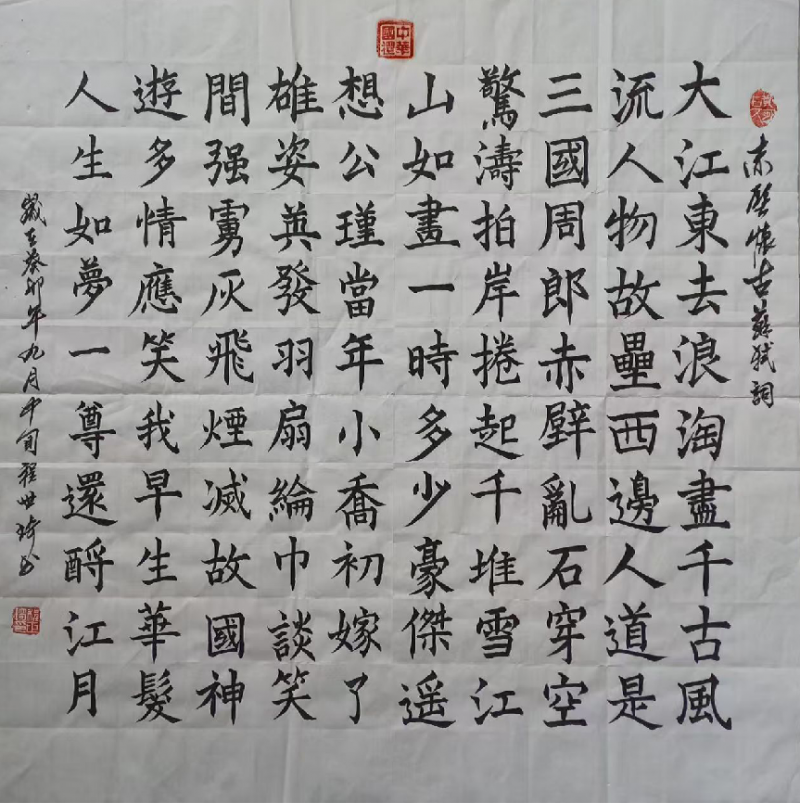 赤壁懷古蘇軾詞
大江東去浪淘盡千古風
流人物故壘西邊人道是
三國周郎赤壁亂石穿空
驚濤拍岸捲起千堆雪江
山如畫一時多少豪傑遥
想公瑾當年小喬初嫁了
雄姿英發羽扇綸巾談笑
間强虜灰飛煙滅故國神
遊多情應笑我早生華髮
人生如夢一尊還酹江月
歲在癸卯年九月中旬程世書
中華國